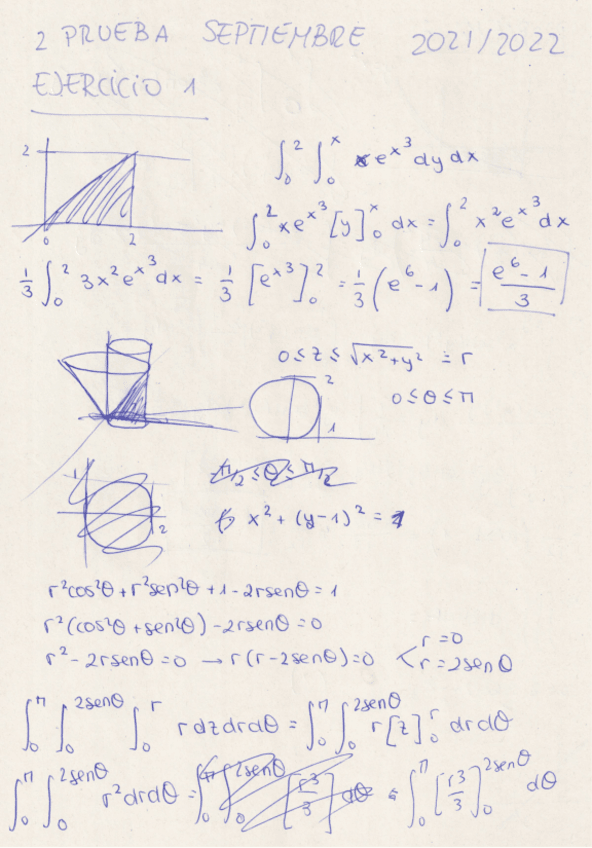 2 PRUEBA SEPTIEMBRE 2021/2022
EJERCICIO 1
2
0 2
∫₀² ∫₀ˣ xe^{x³} dy dx
∫₀² xe^{x³} [y]₀ˣ dx = ∫₀² x²e^{x³} dx
1/3 ∫₀² 3x²e^{x³} dx = 1/3 [e^{x³}]₀² = 1/3 (e⁶ - 1) = (e⁶ - 1)/3
0 ≤ z ≤ √(x² + y²) = r
2
0 ≤ θ ≤ π
1
π/2 ≤ θ ≤ π/2
1
2
x² + (y - 1)² = 1
r²cos²θ + r²sen²θ + 1 - 2rsenθ = 1
r²(cos²θ + sen²θ) - 2rsenθ = 0
r² - 2rsenθ = 0 → r(r - 2senθ) = 0 < r = 0
r = 2senθ
∫₀^π ∫₀^{2senθ} ∫₀^r r dz dr dθ = ∫₀^π ∫₀^{2senθ} r [z]₀^r dr dθ
∫₀^π ∫₀^{2senθ} r² dr dθ = ∫₀^π ∫₀^{2senθ} [r³/3] dθ = ∫₀^π [r³/3]₀^{2senθ} dθ